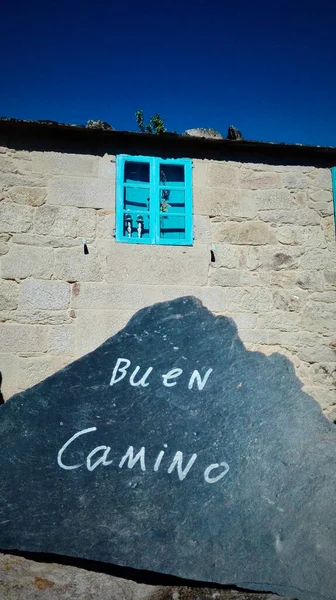 Buen
Camino